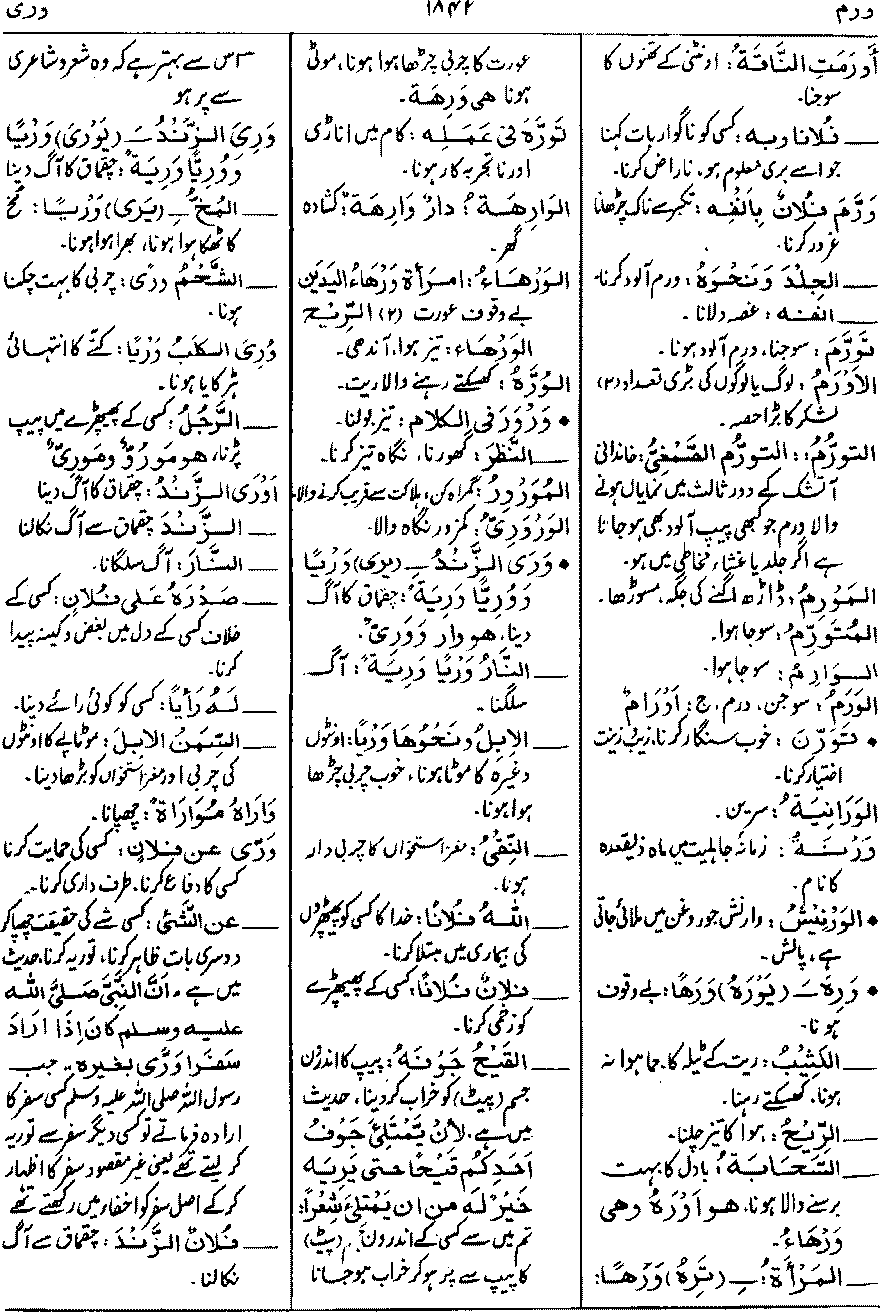 ورم
۱۸۴۲
وری
أورَمَتِ النَّاقَةُ: اونٹنی کے تھنوں کا
سوجنا۔
— فُلَانًا وبہ: کسی کو ناگوار بات کہنا
جو اسے بری معلوم ہو، ناراض کرنا۔
وَرَّمَ فُلَانٌ بِأنْفِہ: تکبر سے ناک چڑھانا
غرور کرنا۔
— الجِلْدَ وَنَحْوَہُ: ورم آلود کرنا۔
— انفَہ: غصہ دلانا۔
تَوَرَّمَ: سوجنا، ورم آلود ہونا۔
الأَوْرَمُ: لوگ یا لوگوں کی بڑی تعداد (۲)
لشکر کا بڑا حصہ۔
التورُّمُ: التورُّم الصَّمْغِیُّ: خاندانی
آتشک کے دور ثالث میں نمایاں ہونے
والا ورم جو کبھی پیپ آلود بھی ہو جاتا
ہے اگر جلد یا غشاء مخاطی میں ہو۔
المَوْرِمُ: ڈاڑھ اگنے کی جگہ، مسوڑھا۔
المُتَوَرِّمُ: سوجا ہوا۔
الوارِمُ: سوجا ہوا۔
الوَرَمُ: سوجن، ورم، ج: أَوْرَامٌ
• تَوَرَّنَ: خوب سنگار کرنا، زیب زینت
اختیار کرنا۔
الوَرَانِیَةُ: سرین۔
وَرْنَةُ: زمانہ جاہلیت میں ماہ ذیقعدہ
کا نام۔
• الوَرْنِیْشُ: وارنش جو روغن میں ملائی جاتی
ہے، پالش۔
• وَرِہَ — (یَوْرَہُ) وَرَھًا: بے وقوف
ہونا۔
— الکَثِیْبُ: ریت کے ٹیلہ کا، جما ہوا نہ
ہونا، کھسکتے رہنا۔
— الرِّیْحُ: ہوا کا تیز چلنا۔
— السَّحَابَةُ: بادل کا بہت
برسنے والا ہونا، ھو أَوْرَہُ وھی
وَرْھَاءُ۔
— المَرْأَةُ — (تَرِہُ) وَرْھًا:
عورت کا چربی چڑھا ہوا ہونا، موٹی
ہونا ھی وَرِھَة۔
تَوَرَّہَ فی عَمَلِہ: کام میں اناڑی
اور نا تجربہ کار ہونا۔
الوَارِھَة: دارٌ وَارِھَة: کشادہ
گھر۔
الوَرْھَاءُ: امرأة وَرْھَاءُ الیَدَیْن
بے وقوف عورت (۲) الرِّیْح
الوَرْھَاء: تیز ہوا، آندھی۔
الوُرَّہُ: کھسکتے رہنے والا ریت۔
• وَرْوَرَ فی الکلام: تیز بولنا۔
— النَّظَرَ: گھورنا، نگاہ تیز کرنا۔
المُوَرْوِرُ: گمراہ کن، ہلاکت سے قریب کرنے والا۔
الوَرْوَرِیُّ: کمزور نگاہ والا۔
• وَرَی الزَّنْدُ — (یَرِی) وَرْیًا
وَوُرِیًّا وَرِیَةً: چقماق کا آگ
دینا، ھو وار وَوَرِیٌّ۔
— النَّارُ وَرْیًا وَرِیَةً: آگ
سلگنا۔
— الإبِلُ ونَحْوُھَا وَرْیًا: اونٹوں
وغیرہ کا موٹا ہونا، خوب چربی چڑھا
ہوا ہونا۔
— النِّقْیُ: مغز استخواں کا چربی دار
ہونا۔
— اللہُ فُلَانًا: خدا کا کسی کو پھیپھڑوں
کی بیماری میں مبتلا کرنا۔
— فُلَانٌ فُلَانًا: کسی کے پھیپھڑے
کو زخمی کرنا۔
— القَیْحُ جَوْفَہُ: پیپ کا اندرُن
جسم (پیٹ) کو خراب کر دینا، حدیث
میں ہے، لأنْ یَمْتَلِئَ جَوْفُ
أَحَدِکُم قَیْحًا حتی یَرِیَہ
خَیْرٌ لَہ من ان یَمْتَلِئَ شِعْرًا:
تم میں سے کسی کے اندرون (پیٹ)
کا پیپ سے پر ہو کر خراب ہو جانا
اس سے بہتر ہے کہ وہ شعر و شاعری
سے پر ہو
وَرِیَ الزَّنْدُ — (یَوْرَی) وَرْیًا
وَوُرِیًّا وَرِیَةً: چقماق کا آگ دینا
— المُخُّ — (یَرِی) وَرْیًا: مخ
کا ٹھکا ہوا ہونا، بھرا ہوا ہونا۔
— الشَّحْمُ وَرْیً: چربی کا بہت چکنا
ہونا۔
وُرِیَ الکَلْبُ وَرْیًا: کتے کا انتہائی
ہڑکایا ہونا۔
— الرَّجُلُ: کسی کے پھیپھڑے میں پیپ
پڑنا، ھو مَوْرُوٌّ ومَوْرِیٌّ
أَوْرَی الزَّنْدُ: چقماق کا آگ دینا
— الزَّنْدَ چقماق سے آگ نکالنا
— النَّارَ: آگ سلگانا۔
— صَدْرَہُ عَلی فُلَانٍ: کسی کے
خلاف کسی کے دل میں بغض و کینہ پیدا
کرنا۔
— لَہُ رَأْیًا: کسی کو کوئی رائے دینا۔
— السِّمَنُ الإبِلَ: موٹاپے کا اونٹوں
کی چربی اور مغز استخواں کو بڑھا دینا۔
وَارَاہُ مُوَارَاةً: چھپانا۔
وَرَّی عن فُلَانٍ: کسی کی حمایت کرنا
کسی کا دفاع کرنا، طرف داری کرنا۔
— عن الشَّیْئِ: کسی شے کی حقیقت چھپا کر
دوسری بات ظاہر کرنا، توریہ کرنا، حدیث
میں ہے ،أَنَّ النَّبِیَّ صَلَّی اللّٰہ
علیہ وسلم کَانَ إذَا أرَادَ
سَفَرًا وَرَّی بغیرہ، جب
رسول اللہ صلی اللہ علیہ وسلم کسی سفر کا
ارادہ فرماتے تو کسی دیگر سفر سے توریہ
کر لیتے تھے یعنی غیر مقصود سفر کا اظہار
کر کے اصل سفر کو اخفاء میں رکھتے تھے
— فُلَانٌ الزَّنْدَ: چقماق سے آگ
نکالنا۔